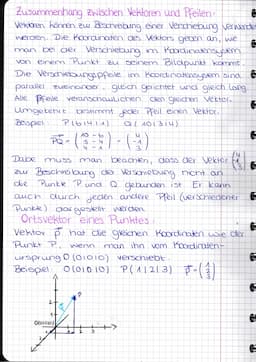 Zusammenhang zwischen Vektoren und Pfeilen:
Vektoren können zur Beschreibung einer Verschiebung verwendet
werden. Die Koordinaten des Vektors geben an, wie
man bei der Verschiebung im Koordinatensystem
von einem Punkt zu seinem Bildpunkt kommt.
Die Verschiebungspfeile im Koordinatensystem sind
parallel zueinander, gleich gerichtet und gleich lang.
Alle Pfeile veranschaulichen den gleichen Vektor.
Umgekehrt bestimmt jeder Pfeil einen Vektor.
Beispiel P(6|4|1) Q(10|3|4)
PQ = (10-6 3-4 4-1) = (4 -1 3)
Dabei muss man beachten, dass der Vektor (4 -1 3)
zur Beschreibung der Verschiebung nicht an
die Punkte P und Q gebunden ist. Er kann
auch durch jeden andere Pfeil (verschiedener
Punkte) dargestellt werden.
Ortsvektor eines Punktes:
Vektor p hat die gleichen Koordinaten wie der
Punkt P, wenn man ihn vom Koordinaten-
ursprung O(0|0|0) verschiebt.
Beispiel O(0|0|0) P(1|2|3) p=(1 2 3)